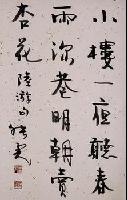 小樓一夜聽春
雨深巷明朝賣
杏花 陸游句